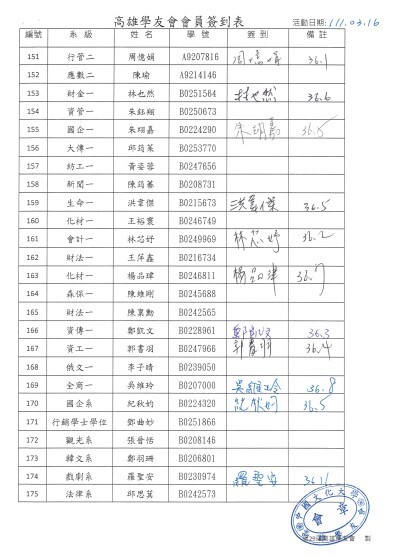 高雄學友會會員簽到表 活動日期: 111.03.16
編號 系級 姓名 學號 簽到 備註
151 行管二 周憶娟 A9207816 36.1
152 應數二 陳瑜 A9214146
153 財金一 林也然 B0251564 林也然 36.6
154 資管一 朱鈺翔 B0250673
155 國企一 朱珝嘉 B0224290 朱珝嘉 36.5
156 大傳一 邱筠茱 B0253770
157 紡工一 黃姿蓉 B0247656
158 新聞一 陳筠蓁 B0208731
159 生命一 洪韋傑 B0215673 36.5
160 化材一 王裕寰 B0246749
161 會計一 林芯妤 B0249969 林芯妤 36.2
162 財法一 王萍鑫 B0216734
163 化材一 楊品瑋 B0246811 楊品瑋 36.7
164 森保一 陳維剛 B0245688
165 財法一 陳稟勳 B0242565
166 資傳一 鄭凱文 B0228961 鄭凱文 36.3
167 資工一 郭書羽 B0247966 郭書羽 36.4
168 俄文一 李子晴 B0239050
169 全商一 吳維玲 B0207000 吳維玲 36.8
170 國企系 紀秋妁 B0224320 紀秋妁 36.5
171 行銷學士學位 鄧曲妙 B0251866
172 觀光系 張晉恬 B0208146
173 韓文系 鄭羽珊 B0206801
174 戲劇系 羅聖安 B0230974 羅聖安 36.11
175 法律系 邱思萁 B0242573
中國文化大學
會章
製